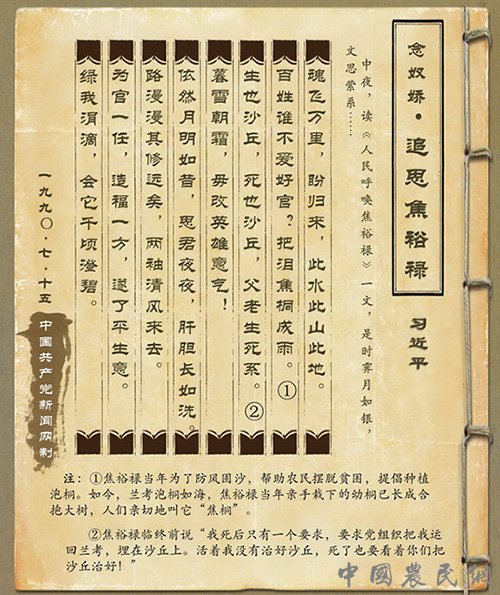 念奴娇·追思焦裕禄
习近平
中夜，读《人民呼唤焦裕禄》一文，是时霁月如银，
文思萦系……
魂飞万里，盼归来，此水此山此地。
百姓谁不爱好官？把泪焦桐成雨。①
生也沙丘，死也沙丘，父老生死系。②
暮雪朝霜，毋改英雄意气！
依然月明如昔，思君夜夜，肝胆长如洗。
路漫漫其修远矣，两袖清风来去。
为官一任，造福一方，遂了平生意。
绿我涓滴，会它千顷澄碧。
一九九〇·七·十五
中国共产党新闻网制
注：①焦裕禄当年为了防风固沙，帮助农民摆脱贫困，提倡种植
泡桐。如今，兰考泡桐如海，焦裕禄当年亲手栽下的幼桐已长成合
抱大树，人们亲切地叫它“焦桐”。
②焦裕禄临终前说“我死后只有一个要求，要求党组织把我运
回兰考，埋在沙丘上。活着我没有治好沙丘，死了也要看着你们把
沙丘治好！”
中國農民網